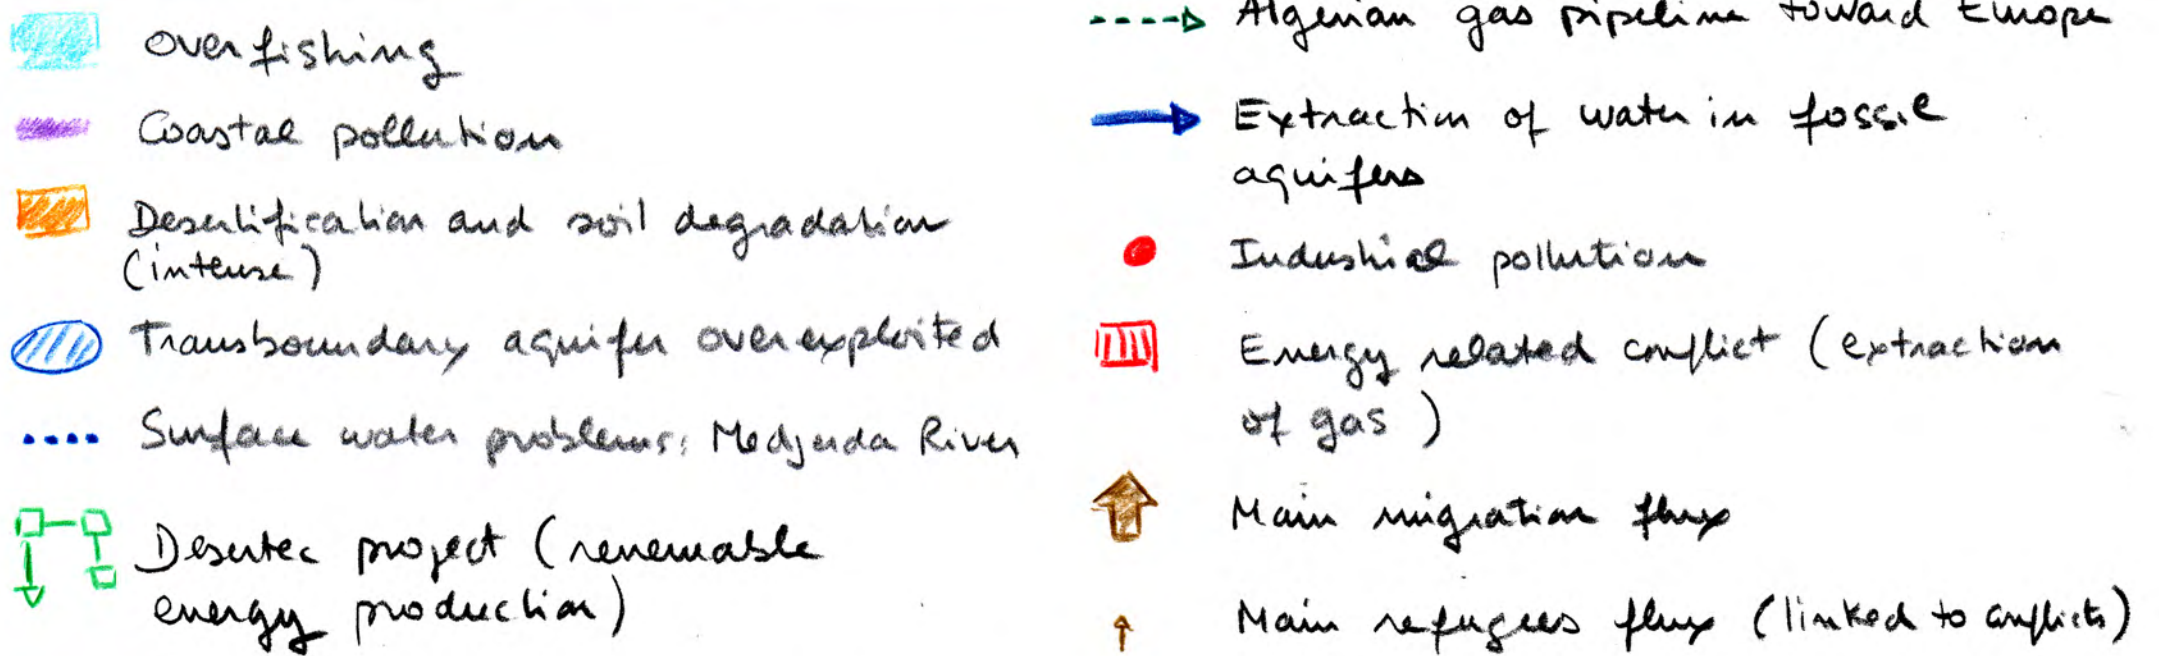 overfishing
Coastal pollution
Desertification and soil degradation
(intense)
Transboundary aquifer overexploited
Surface water problems: Medjerda River
Desertec project (renewable
energy production)
Algerian gas pipeline toward Europe
Extraction of water in fossil
aquifers
Industrial pollution
Energy related conflict (extraction
of gas)
Main migration flux
Main refugees flux (linked to conflicts)